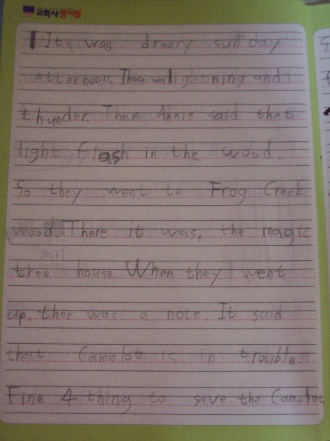 교학사
It was dreary sunday
afternoon. Ther was lightning and
thunder. Then Annie said that
light flash in the wood.
So they went to Frog Creek
wood. There it was, the magic
tree house When they went
up. ther was a note. It said
that Camelot is in trouble.
Fine 4 thing to save the Camelot